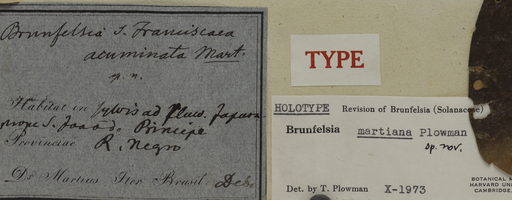 Brunfelsia s. Franciscea
acuminata Mart.
Habitat in sylvis ad fluv. Japura
prope S. Joao do Principe
Provinciae R. Negro
Dr. Martius Iter Brasil. Debr.
TYPE
HOLOTYPE Revision of Brunfelsia (Solanaceae)
Brunfelsia martiana Plowman
sp. nov.
Det. by T. Plowman X-1973
BOTANICAL M
HARVARD UNI
CAMBRIDGE,